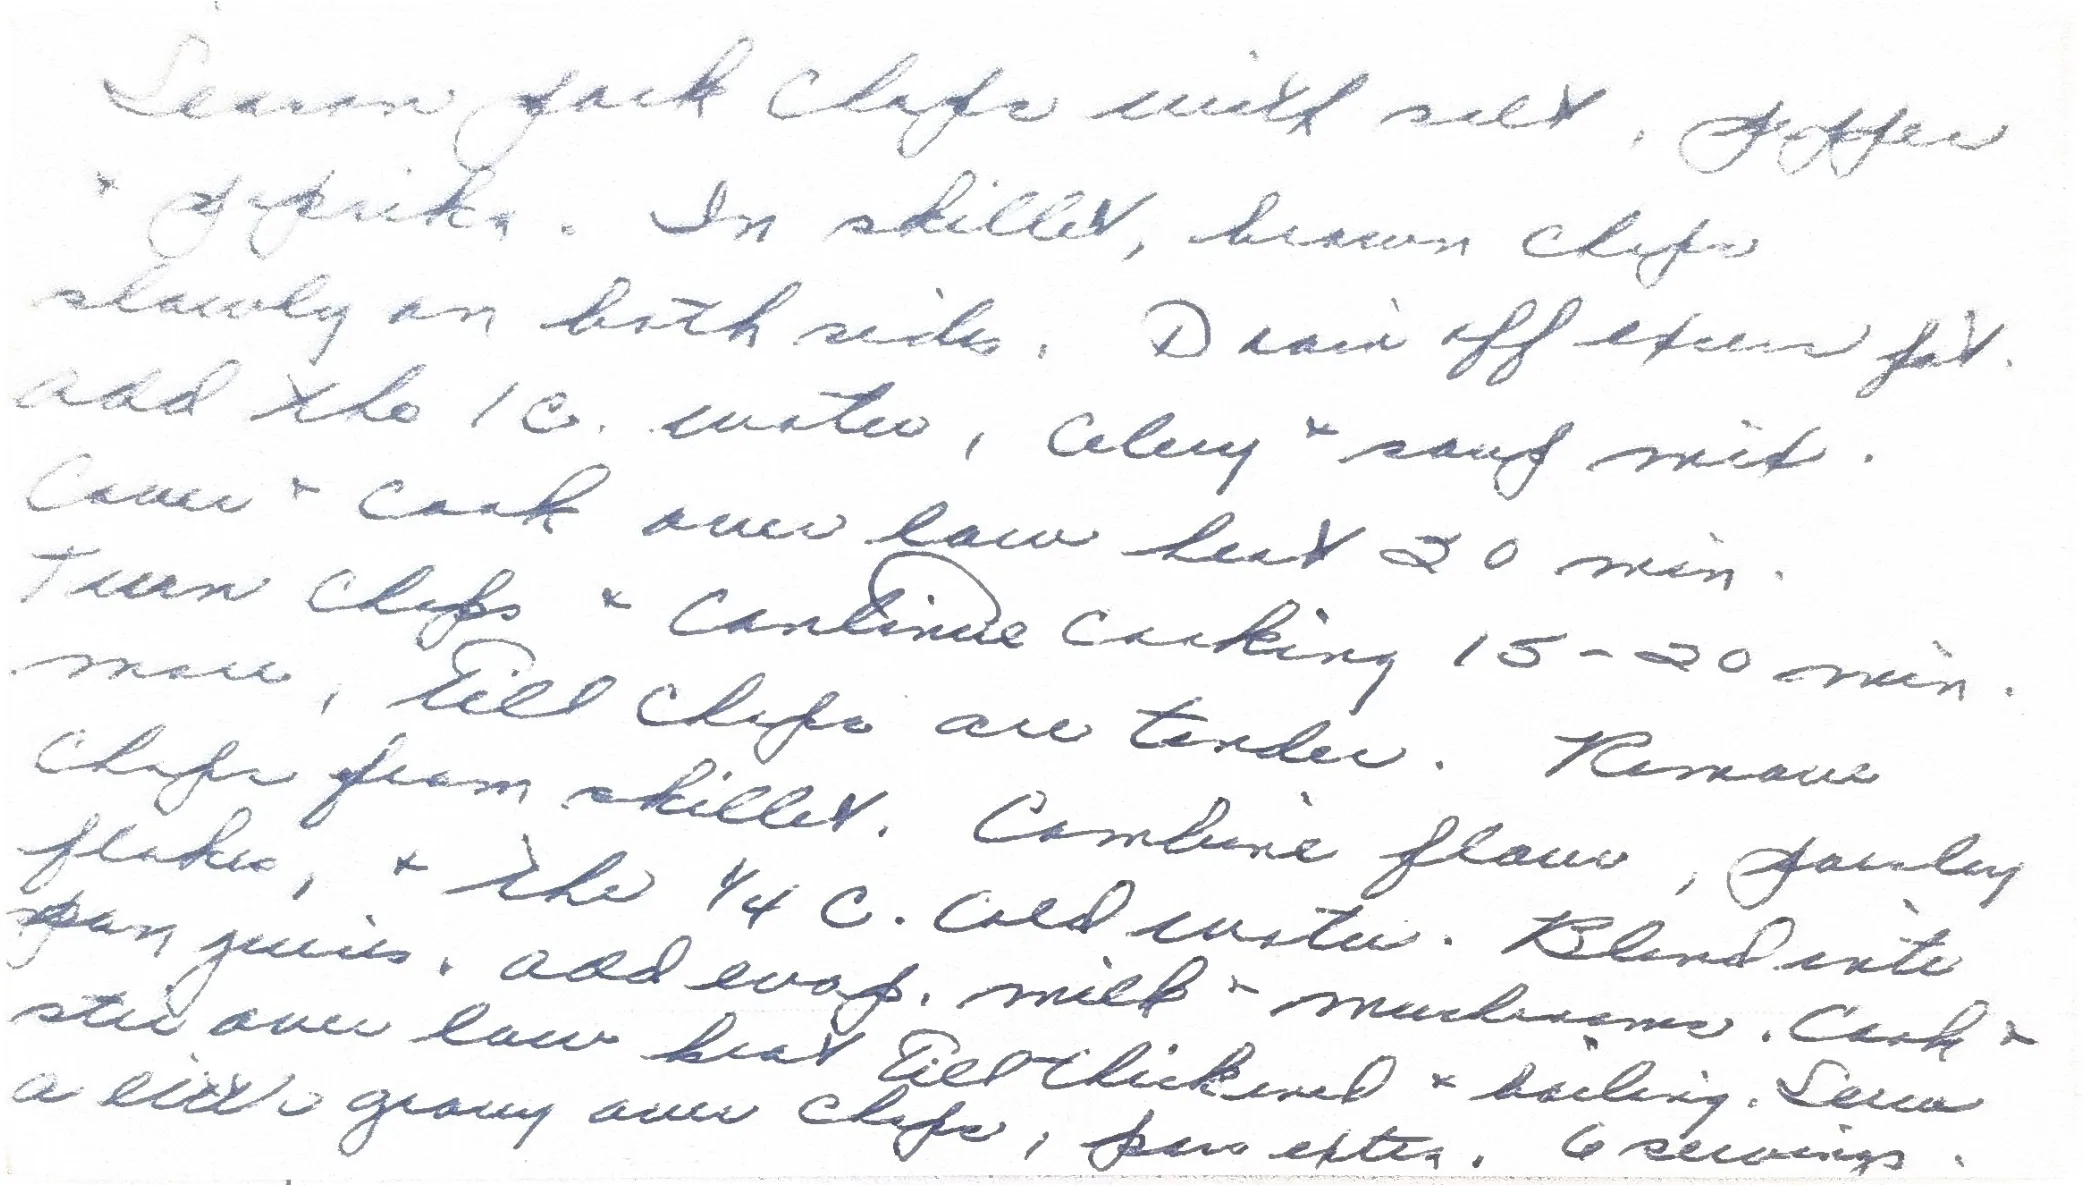 Season pork chops with salt, pepper
+ paprika. In skillet, brown chops
slowly on both sides. Drain off excess fat.
add the 1 c. water, celery + soup mix.
Cover + cook over low heat 20 min.
Turn chops + continue cooking 15-20 min.
more, till chops are tender. Remove
chops from skillet. Combine flour, parsley
flakes, + the 1/4 c. cold water. Blend into
pan juices. add evap. milk + mushrooms. Cook +
stir over low heat till thickened + boiling. Serve
a little gravy over chops, pass extra. 6 servings.